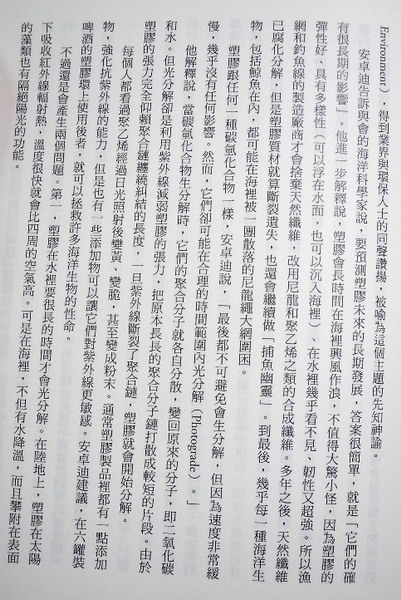 Environment），得到業界與環保人士的同聲讚揚，被喻為這個主題的先知神諭。
安卓迪告訴與會的海洋科學家說，要預測塑膠未來的長期發展，答案很簡單，就是「它們的確
有很長期的影響」。他進一步解釋說，塑膠會長時間在海裡興風作浪，不值得大驚小怪，因為塑膠的
彈性好、具有多樣性（可以浮在水面，也可以沉入海裡）、在水裡幾乎看不見、韌性又超強。所以漁
網和釣魚線的製造廠商才會捨棄天然纖維，改用尼龍和聚乙烯之類的合成纖維。多年之後，天然纖維
已腐化分解，但是塑膠質材就算斷裂遺失，也還會繼續做「捕魚幽靈」。到最後，幾乎每一種海洋生
物，包括鯨魚在內，都可能在海裡被一團散落的尼龍繩大網圍困。
塑膠跟任何一種碳氫化合物一樣，安卓迪說，「最後都不可避免會生分解，但因為速度非常緩
慢，幾乎沒有任何影響。然而，它們卻可能在合理的時間範圍內光分解（Photograde）。」
他解釋說，當碳氫化合物生分解時，它們的聚合分子就各自分散，變回原來的分子，即二氧化碳
和水。但光分解卻是利用紫外線減弱塑膠的張力，把原本長長的聚合分子鏈打散成較短的片段。由於
塑膠的張力完全仰賴聚合鏈纏繞糾結的長度，一旦紫外線斷裂了聚合鏈，塑膠就會開始分解。
每個人都看過聚乙烯經過日光照射後變黃、變脆，甚至變成粉末。通常塑膠製品裡都有一點添加
物，強化抗紫外線的能力，但是也有一些添加物可以讓它們對紫外線更敏感。安卓迪建議，在六罐裝
啤酒的塑膠環上使用後者，就可以拯救許多海洋生物的性命。
不過還是會產生兩個問題。第一，塑膠在水裡要很長的時間才會光分解。在陸地上，塑膠在太陽
下吸收紅外線輻射熱，溫度很快就會比四周的空氣高。可是在海裡，不但有水降溫，而且攀附在表面
的藻類也有隔絕陽光的功能。